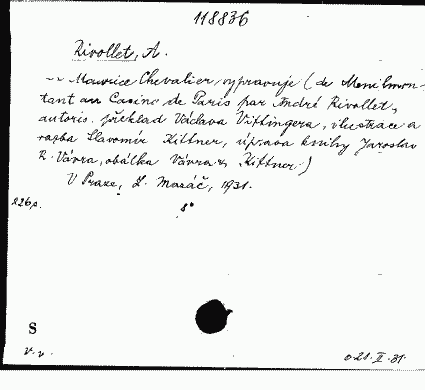 118836
Rivollet, A.
-- Maurice Chevalier vypravuje (de Menilmon-
tant au Casino de Paris par André Rivollet,
autoris. překlad Václava Vittingera, ilustrace a
vazba Slavomír Kittner, úprava knihy Jaroslav
R. Vávra, obálka Vávra & Kittner)
V Praze, L. Mazáč, 1931.
226 p.
8°
S
v. v.
o 21. II. 31.